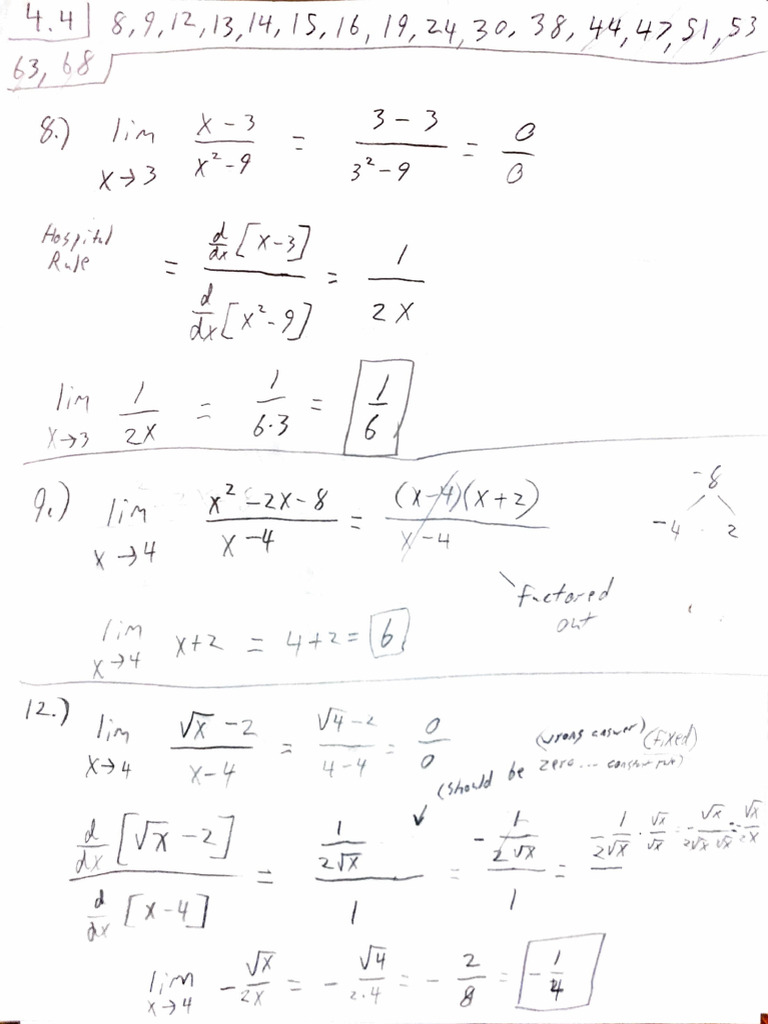 4.4 8, 9, 12, 13, 14, 15, 16, 19, 24, 30, 38, 44, 47, 51, 53
63, 68
8.) lim x→3 (x-3)/(x²-9) = (3-3)/(3²-9) = 0/0
Hospital Rule = (d/dx [x-3])/(d/dx [x²-9]) = 1/(2x)
lim x→3 1/(2x) = 1/(6·3) = 1/6
9.) lim x→4 (x²-2x-8)/(x-4) = ((x-4)(x+2))/(x-4) -8 -4 2
Factored out
lim x→4 x+2 = 4+2 = 6
12.) lim x→4 (√x -2)/(x-4) = (√4-2)/(4-4) = 0/0
(wrong answer) (fixed)
(should be zero... constant rule)
(d/dx [√x -2])/(d/dx [x-4]) = (1/(2√x))/1 = (-1/(2√x))/1 = -1/(2√x) · √x/√x = -√x/(2√x √x) = -√x/2x
lim x→4 -√x/2x = -√4/(2·4) = -2/8 = -1/4